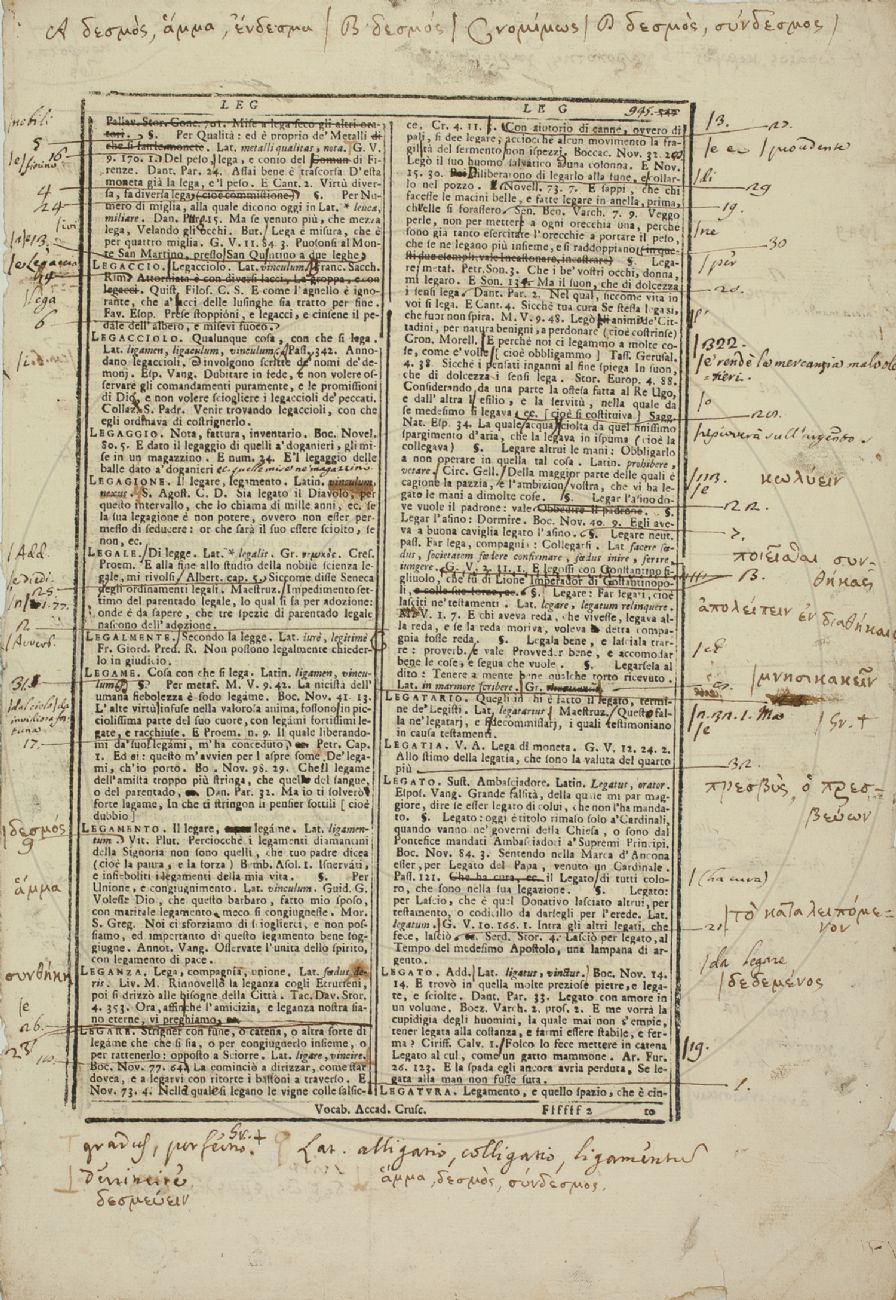 A δεσμὸς, ἅμμα, ἔνδεσμα / B δεσμός / C νομίμως / D δεσμὸς, σύνδεσμος /
LEG
LEG
Pallav. Stor. Conc. 701. Mise a lega seco gli altri ora-
tori. §. Per Qualità: ed è proprio de' Metalli di
che si fan le monete. Lat. metalli qualitas, nota. G. V.
9. 170. 1. Del pelo, lega, e conio del Comun di Fi-
renze. Dant. Par. 24. Assai bene è trascorsa D'esta
moneta già la lega, e'l peso. E Cant. 2. Virtù diver-
sa, fa diversa lega (cioè commistione) §. Per Nu-
mero di miglia, alla quale dicono oggi in Lat. * leuca,
miliare. Dan. 15. Ma se venuto più, che mezza
lega, Velando gli occhi. But. Lega è misura, che è
per quattro miglia. G. V. 11. 84. 3. Puosonsi al Mon-
te San Martino, presso San Quintino a due leghe
LEGACCIO. Legacciolo. Lat. vinculum. Franc. Sacch.
Rim. Attorniato è con diversi lacci, La groppa, e con
legacci. Quist. Filosof. C. S. E come l'agnello è igno-
rante, che a' lacci delle lusinghe sia tratto per fine.
Fav. Esop. Prese stoppioni, e legacci, e cinsene il pe-
dale dell'albero, e misevi fuoco.
LEGACCIOLO. Qualunque cosa, con che si lega.
Lat. ligamen, ligaculum, vinculum. Pass. 342. Anno-
dano legaccioli, involgono scritte de' nomi de' de-
monj. Esp. Vang. Dubitare in fede, e non volere os-
servare gli comandamenti puramente, e le promissioni
di Dio, e non volere sciogliere i legaccioli de' peccati.
Collaz. S. Padr. Venir trovando legaccioli, con che
egli ordinava di costrignerlo.
LEGAGGIO. Nota, fattura, inventario. Boc. Novel.
80. 5. E dato il legaggio di quelli a' doganieri, gli mi-
se in un magazzino. E num. 24. E'l legaggio delle
balle dato a' doganieri
LEGAGIONE. Il legare, legamento. Latin. vinculum,
nexus. S. Agost. C. D. Sia legato il Diavolo, per
questo intervallo, che lo chiama di mille anni, ec. se
la sua legagione è non potere, ovvero non esser per-
messo di seducere: or che sarà il suo essere sciolto, se
non, ec.
LEGALE. Di legge. Lat. * legalis. Gr. νομικός. Cres.
Proem. E alla fine allo studio della nobile scienza le-
gale, mi rivolsi. Albert. cap. 5. Siccome disse Seneca
negli ordinamenti legali. Maestruz. Impedimento set-
timo del parentado legale, lo qual si fa per adozione:
onde è da sapere, che tre spezie di parentado legale
nascono dell'adozione.
LEGALMENTE. Secondo la legge. Lat. iurè, legitimè
Fr. Giord. Pred. R. Non possono legalmente chieder-
lo in giudicio.
LEGAME. Cosa con che si lega. Latin. ligamen, vincu-
lum. §. Per metaf. M. V. 9. 42. La nicistà dell'
umana fiebolezza è sodo legàme. Boc. Nov. 41. 13.
L'alte virtù infuse nella valorosa anima, fossono in pic-
ciolissima parte del suo cuore, con legámi fortissimi le-
gate, e racchiuse. E Proem. n. 9. Il quale liberando-
mi da' suoi legámi, m'ha conceduto. Petr. Cap.
1. Ed ei: questo m'avvien per l'aspre some De' lega-
mi, ch'io porto. Bo. Nov. 98. 29. Che il legame
dell'amistà troppo più stringa, che quel del sangue,
o del parentado, Dan. Par. 32. Ma io ti solverò
forte lagame, In che ti stringon li pensier sottili [cioè
dubbio]
LEGAMENTO. Il legare, legáne. Lat. ligamen-
tum. Vit. Plut. Perciocchè i legamenti diamantini
della Signoria non sono quelli, che tuo padre dicea
(cioè la paura, e la forza) Bemb. Asol. 1. Isnervati,
e infieboliti i legamenti della mia vita. §. Per
Unione, e congiugnimento. Lat. vinculum. Guid. G.
Volesse Dio, che questo barbaro, fatto mio sposo,
con maritale legamento, meco si congiugnesse. Mor.
S. Greg. Noi ci sforziamo di scioglierci, e non pos-
siamo, ed impertanto di questo legamento bene sog-
giugne. Annot. Vang. Osservate l'unità dello spirito,
con legamento di pace.
LEGANZA. Lega, compagnia, unione. Lat. foedus foede-
ris. Liv. M. Rinnovello la leganza cogli Etrusceni,
poi si drizzò alle bisogne della Città. Tac. Dav. Stor.
4. 353. Ora, affinchè l'amicizia, e leganza nostra sia-
no eterne, vi preghiamo,
LEGARE. Strigner con fune, o catena, o altra sorte di
legáme che che si sia, o per congiugnerlo insieme, o
per rattenerlo: opposto a Sciorre. Lat. ligare, vincire.
Boc. Nov. 77. 64. La cominciò a dirizzar, come star
dovea, e a legarvi con ritorte i bastoni a traverso. E
Nov. 73. 4. Nella quale si legano le vigne colle salsic-
ce. Cr. 4. 11. 5. Con aiutorio di canne, ovvero di
pali, si dee legare, acciocchè alcun movimento la fra-
gilità del sermento non ispezzi. Boccac. Nov. 32.
Legò il suo huomo salvatico a una colonna. E Nov.
15. 30. Diliberarono di legarlo alla fune, e collar-
lo nel pozzo. Novell. 73. 7. E sappi, che chi
facesse le macini belle, e fatte legare in anella, prima,
ch'elle si forassero. Sen. Ben. Varch. 7. 9. Veggo
perle, non per mettere a ogni orecchia una, perche
sono già tanto esercitate l'orecchie a portare il peso,
che se ne legano più insieme, e si raddoppiano (in que-
sti due esempli, vale Incastonare, incastrare) §. Lega-
re in metaf. Petr. Son. 3. Che i be' vostri occhi, donna,
mi legaro. E Son. 134. Ma il suon, che di dolcezza
i sensi lega. Dant. Par. 2. Nel qual, siccome vita in
voi si lega. E Cant. 4. Sicchè tua cura Se stessa lega sì,
che fuor non spira. M. V. 9. 48. Legò li animi de' Cit-
tadini, per natura benigni, a perdonare (cioè costrinse)
Cron. Morell. E perchè noi ci legammo a molte co-
se, come e' volle [cioè obbligammo] Tass. Gerusal.
4. 38. Sicchè i pensati inganni al fine spiega In suon,
che di dolcezza i sensi lega. Stor. Europ. 4. 88.
Considerando, da una parte la offesa fatta al Re Ugo,
e dall'altra l'esilio, e la servitù, nella quale da
se medesimo si legava ec. [cioè si costituiva] Sagg.
Nat. Esp. 34. La quale acqua sciolta da quel finissimo
spargimento d'aria, che la legava in ispuma (cioè la
collegava) §. Legare altrui le mani: Obbligarlo
a non operare in quella tal cosa. Latin. prohibere,
vetare. Circ. Gell. Della maggior parte delle quali è
cagione la pazzia, e l'ambizion vostra, che vi ha le-
gato le mani a dimolte cose. §. Legar l'asino do-
ve vuole il padrone: vale Obbedire il padrone. §.
Legar l'asino: Dormire. Boc. Nov. 40. 9. Egli ave-
va a buona caviglia legato l'asino. §. Legare neut.
pass. Far lega, compagnia: Collegarsi. Lat. facere foe-
dus, societatem foedere confirmare, foedus inire, ferire,
iungere. G. V. 2. 11. 1. E legossi con Gostantino fi-
gliuolo, che fu di Lione Imperador di Gostantinopo-
li, e colle sue forze, ec. §. Legare: Far legati, cioè
lasciti ne' testamenti. Lat. legare, legatum relinquere.
M. V. 1. 7. E chi aveva reda, che vivesse, legava al-
la reda, e se la reda moriva, voleva la detta compa-
gnia fosse reda. §. Legala bene, e lasciala trar-
re: proverb. e vale Provveder bene, e accomodar
bene le cose, e segua che vuole. §. Legarsela al
dito: Tenere a mente bene qualche torto ricevuto.
Lat. in marmore scribere. Gr.
LEGATARIO. Quegli in chi è fatto il legato, termi-
ne de' Legisti. Lat. legatarius. Maestruz. Questo fal-
la ne' legatarj, e fidecommissarj, i quali testimoniano
in causa testamenti.
LEGATIA. V. A. Lega di moneta. G. V. 12. 24. 2.
Allo stimo della legatia, che sono la valuta del quarto
più
LEGATO. Sust. Ambasciadore. Latin. Legatus, orator.
Espos. Vang. Grande falsità, della quale mi par mag-
giore, dire se esser legato di colui, che non l'ha manda-
to. §. Legato: oggi è titolo rimaso solo a' Cardinali,
quando vanno ne' governi della Chiesa, o sono dal
Pontefice mandati Ambasciadori a' Supremi Principi.
Boc. Nov. 84. 3. Sentendo nella Marca d'Ancona
esser, per Legato del Papa, venuto un Cardinale.
Pass. 121. Che ha cura, ec. il Legato di tutti colo-
ro, che sono nella sua legazione. §. Legato:
per Lascio, che è quel Donativo lasciato altrui, per
testamento, o codicillo da darsegli per l'erede. Lat.
legatum. G. V. 10. 166. 1. Intra gli altri legati, che
fece, lasciò ec. Serd. Stor. 4. Lasciò per legato, al
Tempo del medesimo Apostolo, una lampana di ar-
gento.
LEGATO. Add. Lat. ligatus, vinctus. Boc. Nov. 14.
14. E trovò in quella molte preziose pietre, e lega-
te, e sciolte. Dant. Par. 33. Legato con amore in
un volume. Boez. Varch. 2. pros. 2. E me vorrà la
cupidigia degli huomini, la quale mai non s'empie,
tener legata alla costanza, e farmi essere stabile, e fer-
ma? Ciriff. Calv. 1. Folco lo fece mettere in catena
Legato al cul, come un gatto mammone. Ar. Fur.
26. 123. E la spada egli ancora avria perduta, Se le-
gata alla man non fusse suta.
LEGATVRA. Legamento, e quello spazio, che è cin-
Vocab. Accad. Crusc.
Ffffff 2
to
nobili
5
16
4
24
13
6
25
12
17.
δεσμός
9
ἅμμα
συνθήκη
26.
23
3.
29
19.
30
20.
1322.
κωλύειν
22.
ποιεῖσθαι συν-
θήκας
ἀπολείπειν ἐν διαθήκαις
μνησικακεῖν
Gr. +
32.
πρεσβὺς, ὁ πρεσ-
βεύων
(ha cura)
τὸ καταλειπόμε-
νον
da legare
δεδεμένος
19.
1.
Gr. +
Lat. alligatio, colligatio, ligamentum
ἅμμα, δεσμὸς, σύνδεσμος.
δεσμεύειν